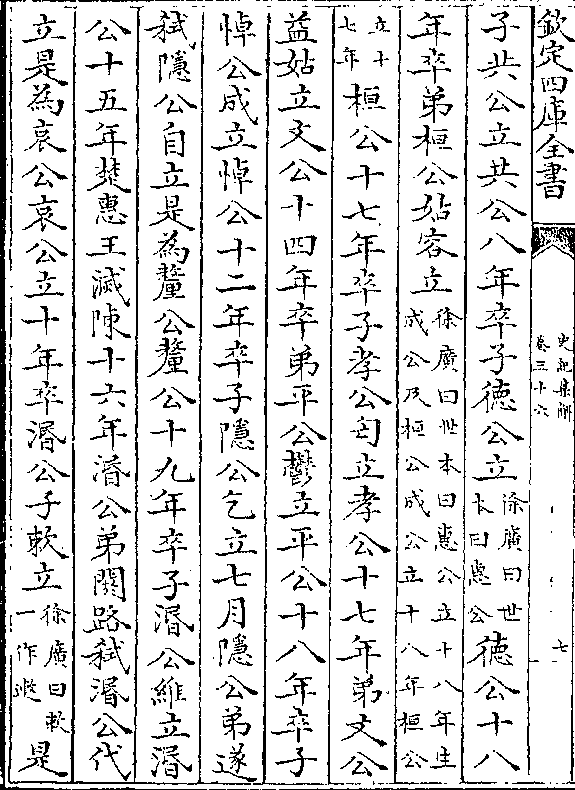 欽定四庫全書
史記集解
卷三十六
七
子共公立共公八年卒子徳公立徐廣曰世本曰惠公徳公十八
年卒弟桓公姑容立徐廣曰世本曰惠公立十八年生成公及桓公成公立十八年桓公
立十七年桓公十七年卒子孝公匄立孝公十七年弟文公
益姑立文公十四年卒弟平公鬱立平公十八年卒子
悼公成立悼公十二年卒子隱公乞立七月隱公弟遂
弑隱公自立是為釐公釐公十九年卒子湣公維立湣
公十五年楚惠王滅陳十六年湣公弟閼路弑湣公代
立是為哀公哀公立十年卒湣公子敕立徐廣曰敕一作遬是